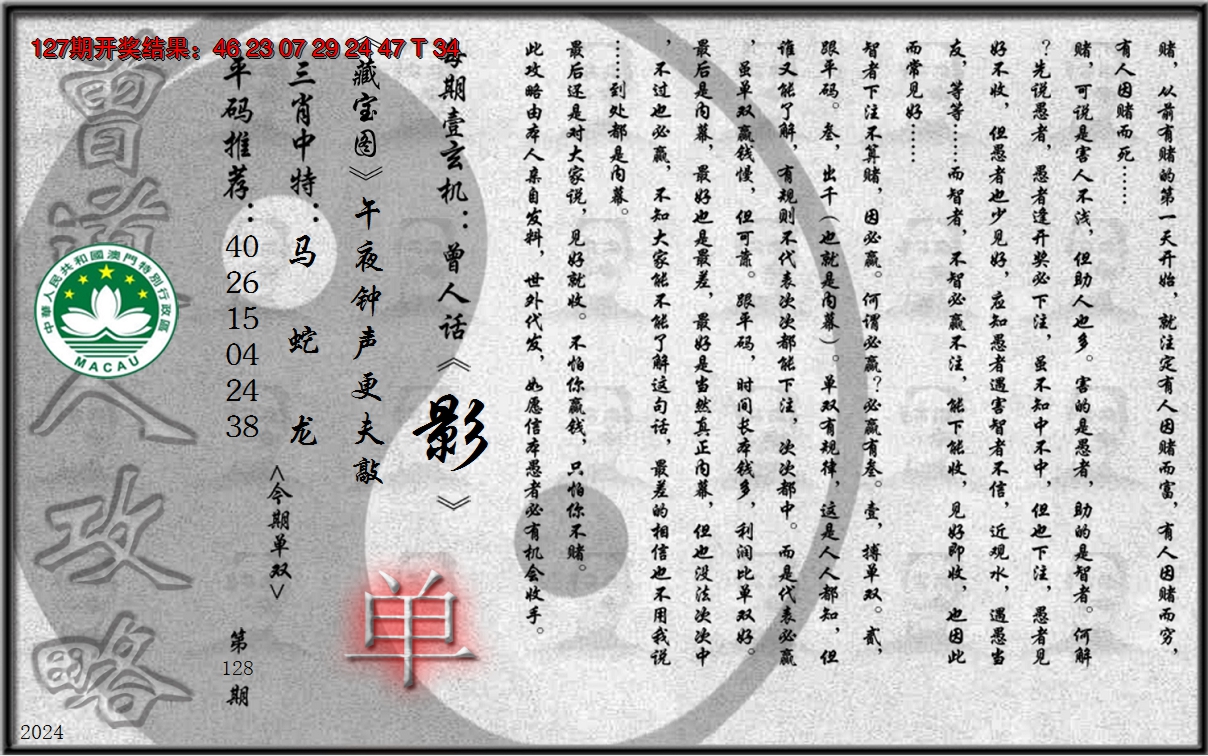 127期开奖结果：46 23 07 29 24 47 T 34
赌，从前有赌的第一天开始，就注定有人因赌而富，有人因赌而穷，
有人因赌而死……
赌，可说是害人不浅，但助人也多。害的是愚者，助的是智者。何解
？先说愚者，愚者逢开奖必下注，虽不知中不中，但也下注，愚者见
好不收，但愚者也少见好，应知愚者遇害智者不信，近观水，遇愚当
友，等等……而智者，不智必赢不注，能下能收，见好即收，也因此
而常见好……
智者下注不算赌，因必赢。何谓必赢？必赢有叁。壹，搏单双。贰，
跟平码。叁，出千（也就是内幕）。单双有规律，这是人人都知，但
谁又能了解，有规则不代表次次都能下注，次次都中。而是代表必赢
，虽单双赢钱慢，但可靠。跟平码，时间长本钱多，利润比单双好。
最后是内幕，最好也是最差，最好是当然真正内幕，但也没法次次中
，不过也必赢，不知大家能不能了解这句话，最差的相信也不用我说
……到处都是内幕。
最后还是对大家说，见好就收。不怕你赢钱，只怕你不赌。
此攻略由本人亲自发料，世外代发，如愿信本愚者必有机会收手。
每期壹玄机：曾人话《影》
《藏宝图》午夜钟声更夫敲
单
三肖中特：马 蛇 龙
<今期单双>
平码推荐：
40
26
15
04
24
38
第
128
期
曾道人攻略
中華人民共和國澳門特別行政區
MACAU
2024